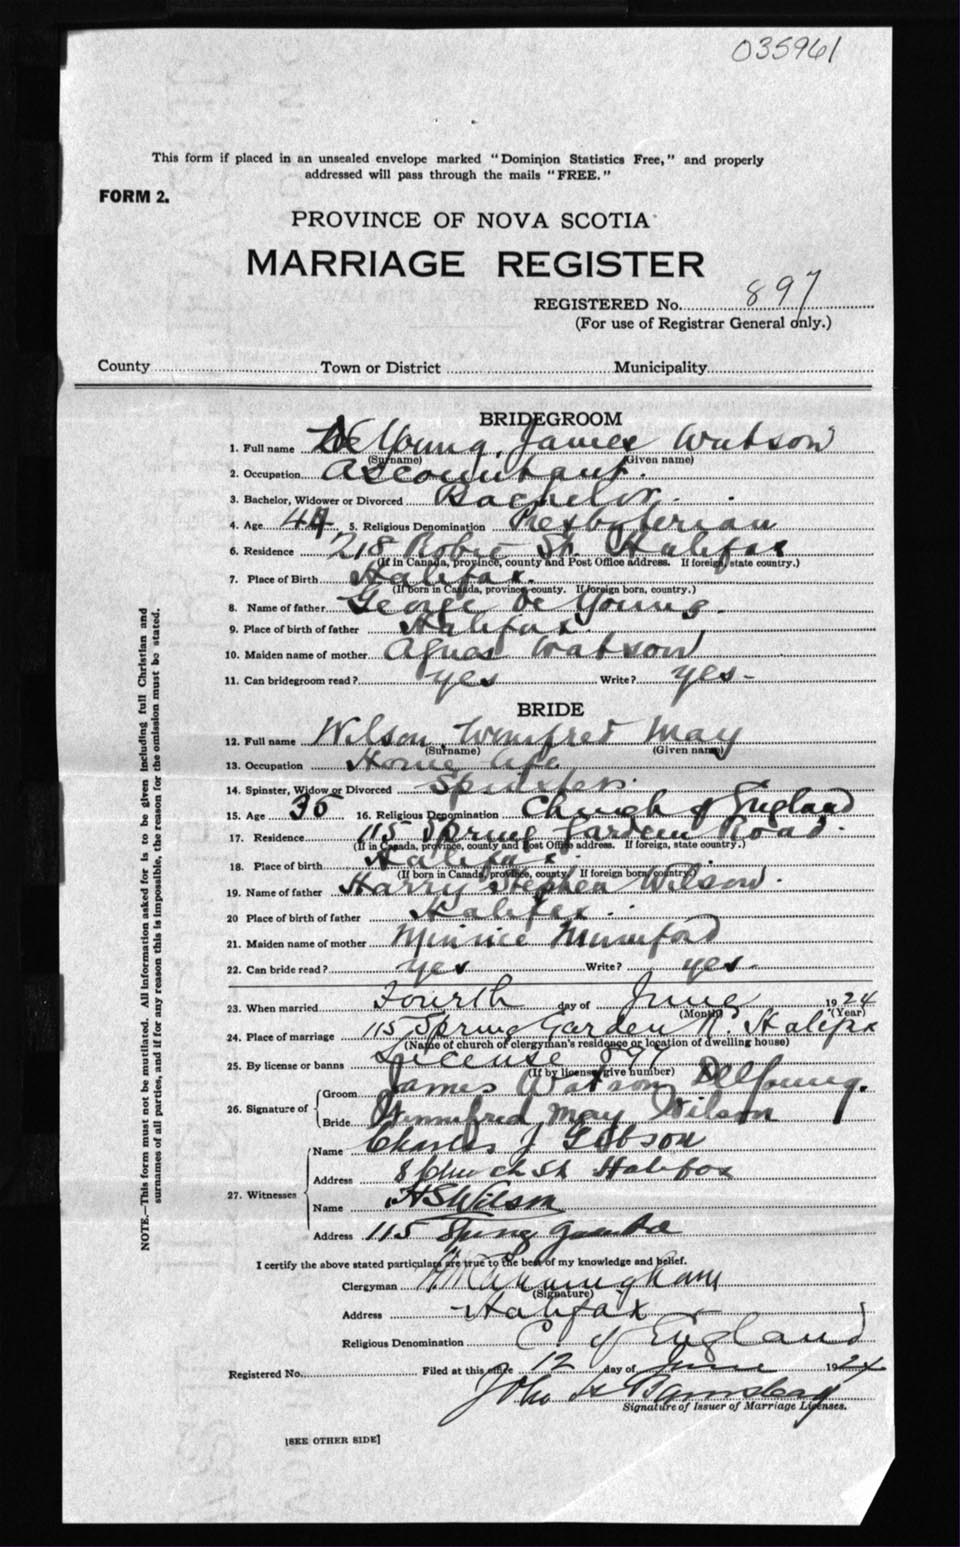 035961
This form if placed in an unsealed envelope marked "Dominion Statistics Free," and properly
addressed will pass through the mails "FREE."
FORM 2.
PROVINCE OF NOVA SCOTIA
MARRIAGE REGISTER
REGISTERED No. 897
(For use of Registrar General only.)
County Town or District Municipality
BRIDEGROOM
1. Full name De Young, James Watson
(Surname) (Given name)
2. Occupation Accountant.
3. Bachelor, Widower or Divorced Bachelor.
4. Age 44 5. Religious Denomination Presbyterian
6. Residence 218 Robie St. Halifax
(If in Canada, province, county and Post Office address. If foreign, state country.)
7. Place of Birth Halifax.
(If born in Canada, province county. If foreign born, country.)
8. Name of father George De Young.
9. Place of birth of father Halifax.
10. Maiden name of mother Agnas Watson
11. Can bridegroom read? yes Write? yes-
BRIDE
12. Full name Wilson Winifred May
(Surname) (Given name)
13. Occupation Home life
14. Spinster, Widow or Divorced Spinster.
15. Age 36 16. Religious Denomination Church of England
17. Residence 115 Spring Garden Road.
(If in Canada, province, county and Post Office address. If foreign, state country.)
18. Place of birth Halifax.
(If born in Canada, province, county. If foreign born, country.)
19. Name of father Harry Stephen Wilson.
20 Place of birth of father Halifax.
21. Maiden name of mother Minnie Mumford
22. Can bride read? yes Write? yes-
23. When married Fourth day of June 1924
(Month) (Year)
24. Place of marriage 115 Spring Garden R. Halifax
(Name of church of clergyman's residence or location of dwelling house)
25. By license or banns License 897
(If by license, give number)
26. Signature of Groom James Watson DeYoung.
Bride Winnifred May Wilson
27. Witnesses Name Charles J Gibson
Address 8 Church St Halifax
Name H S Wilson
Address 115 Spring
I certify the above stated particulars are true to the best of my knowledge and belief.
Clergyman Cunningham
(Signature)
Address Halifax
Religious Denomination C. of England
Registered No. Filed at this office 12 day of June 1924
John
Signature of Issuer of Marriage Licenses.
[SEE OTHER SIDE]
NOTE.—This form must not be mutilated. All information asked for is to be given including full Christian and
surnames of all parties, and if for any reason this is impossible, the reason for the omission must be stated.